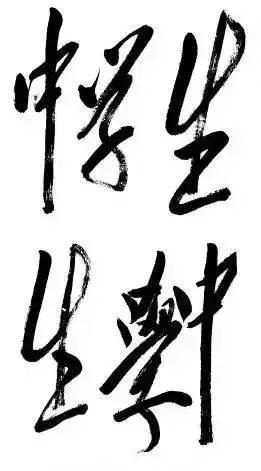 中学生
中學生